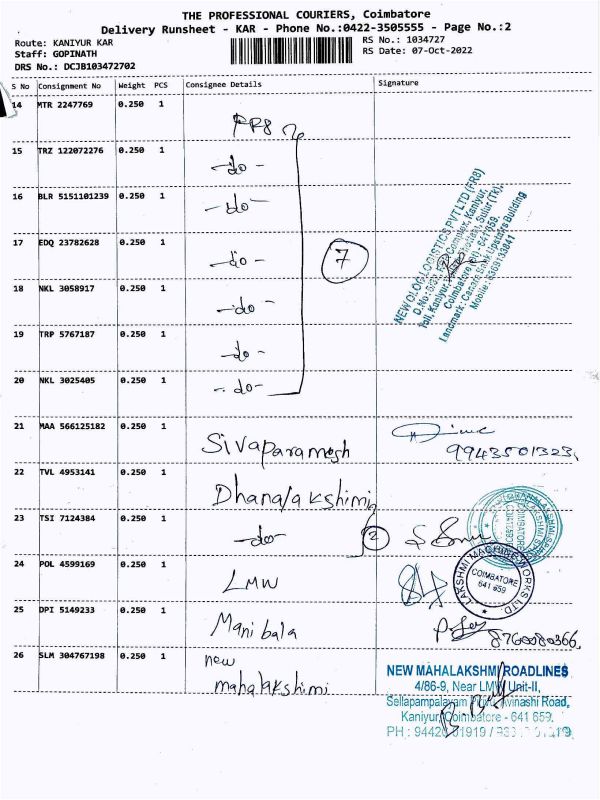 THE PROFESSIONAL COURIERS, Coimbatore
Delivery Runsheet - KAR - Phone No.:0422-3505555 - Page No.:2
Route: KANIYUR KAR
RS No.: 1034727
Staff: GOPINATH
RS Date: 07-Oct-2022
DRS No.: DCJB103472702
S No Consignment No Weight PCS Consignee Details Signature
14 MTR 2247769 0.250 1
FR8
15 TRZ 122072276 0.250 1
-do-
16 BLR 5151101239 0.250 1
-do-
17 EDQ 23782628 0.250 1
-do-
7
18 NKL 3058917 0.250 1
-do-
19 TRP 5767187 0.250 1
-do-
20 NKL 3025405 0.250 1
-do-
NEW OLOG LOGISTICS PVT LTD (FR8)
Complex, Kaniyur,
Toll, Kaniyur, Sulur (Tk),
Coimbatore - 641 659.
Landmark: Canara Bank Upstairs Building
21 MAA 566125182 0.250 1
Sivaparamesh
9943501323
22 TVL 4953141 0.250 1
Dhanalakshimi
23 TSI 7124384 0.250 1
-do-
2
24 POL 4599169 0.250 1
LMW
LAKSHMI MACHINE WORKS LTD.
COIMBATORE
641 659
25 DPI 5149233 0.250 1
Manibala
8760080366
26 SLM 304767198 0.250 1
new
mahalakshimi
NEW MAHALAKSHMI ROADLINES
4/86-9, Near LMW Unit-II,
Sellapampalayam Avinashi Road,
Kaniyur, Coimbatore - 641 659.